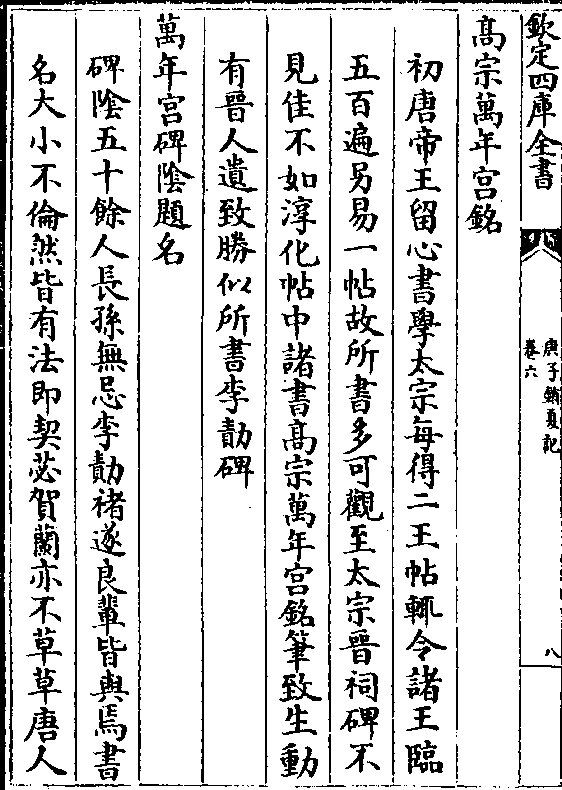 欽定四庫全書
庚子銷夏記
卷六
八
髙宗萬年宫銘
初唐帝王留心書學太宗每得二王帖輒令諸王臨
五百遍另易一帖故所書多可觀至太宗晉祠碑不
見佳不如淳化帖中諸書髙宗萬年宫銘筆致生動
有晉人遺致勝似所書李勣碑
萬年宫碑隂題名
碑隂五十餘人長孫無忌李勣褚遂良輩皆與焉書
名大小不倫然皆有法即契苾賀蘭亦不草草唐人